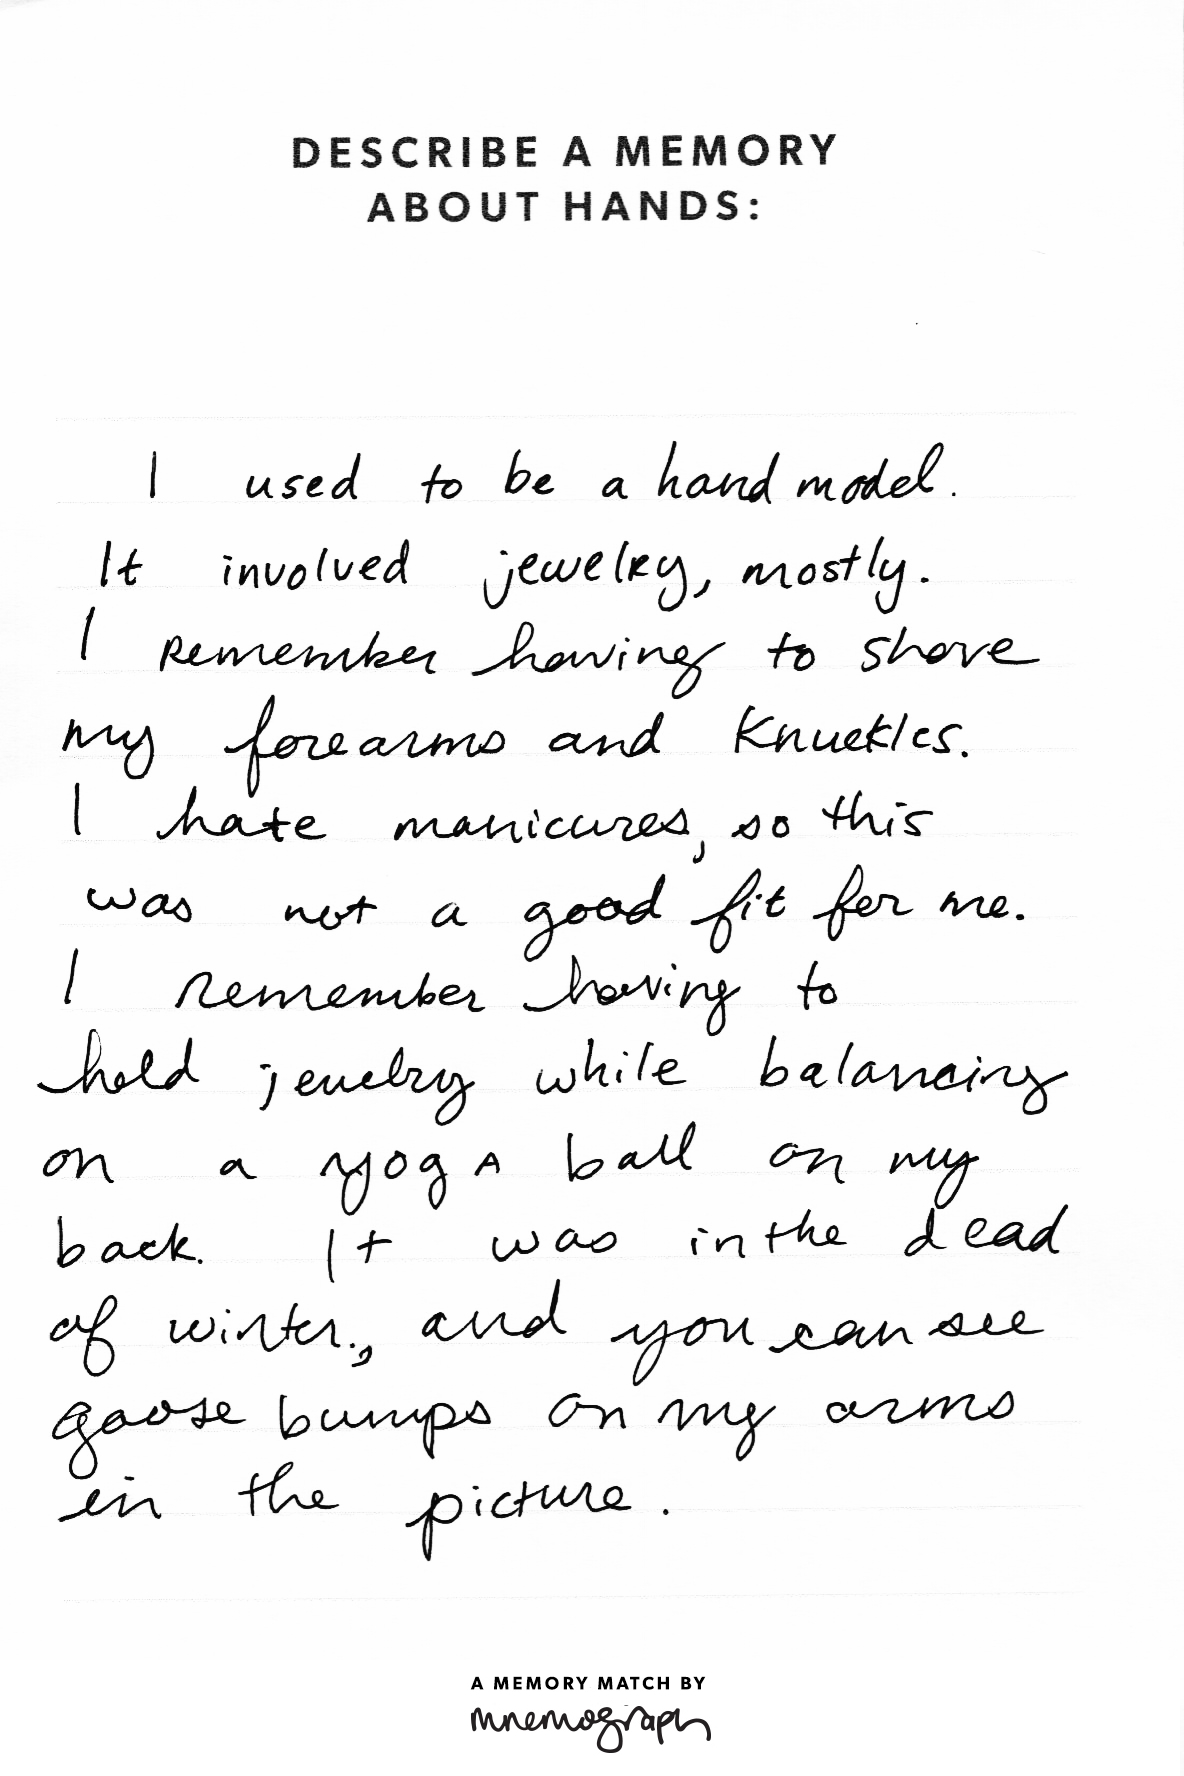 DESCRIBE A MEMORY
ABOUT HANDS:
I used to be a hand model.
It involved jewelry, mostly.
I remember having to shave
my forearms and knuckles.
I hate manicures, so this
was not a good fit for me.
I remember having to
hold jewelry while balancing
on a yoga ball on my
back. It was in the dead
of winter., and you can see
goose bumps on my arms
in the picture.
A MEMORY MATCH BY
mnemograph